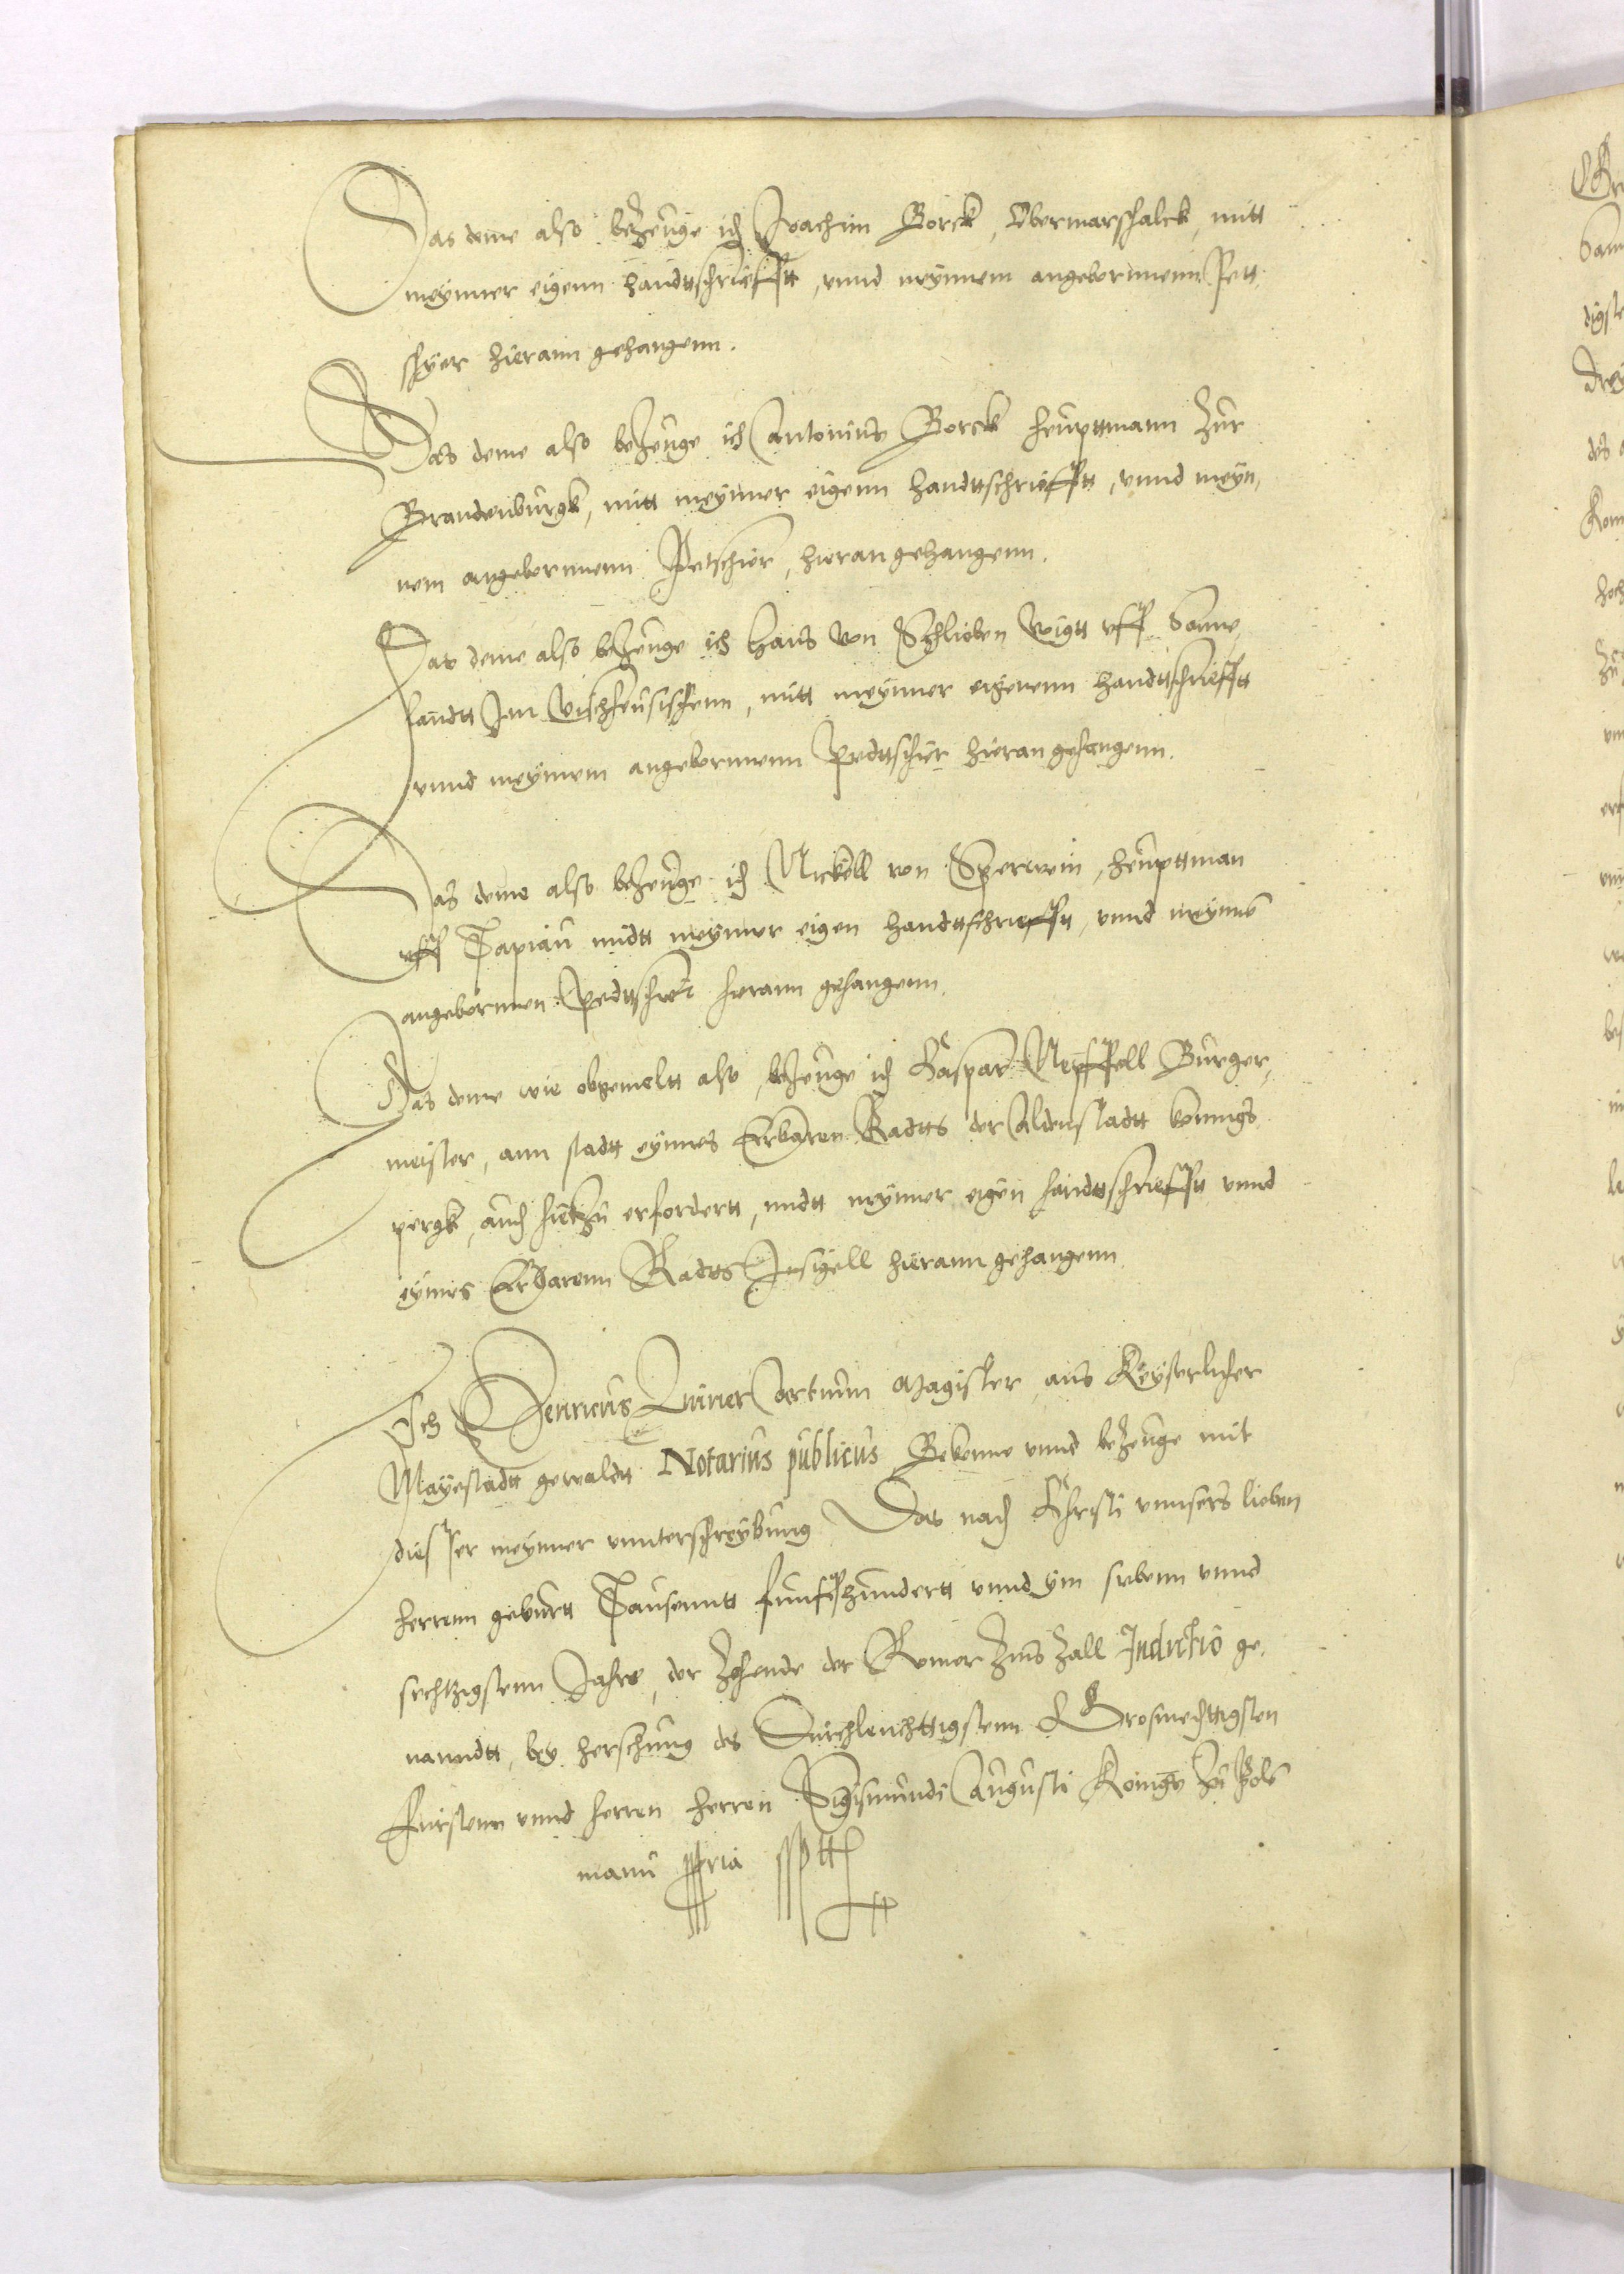 Das deme also bezeuge ich Joachim Borck, Obermarschalck, mitt
meynner eigenn handttschriefftt, vnnd meynnem angebornnenn Pett
schyer hierann gehangenn.
Das deme also bezeuge ich Antonius Borck heupttmann zur
Brandenburgk, mitt meynner eigenn handttschriefftt, vnnd meyn,
nem angebornnenn Petschier, hieran gehangenn.
Das deme also bezeuge ich Hans von Schlieben Voigtt vff Same,
landtt Im Vischheusischenn, mitt meynner eigenenn handttschriefftt
vnnd meynnem angebornnenn Pedttschier hieran gehangenn.
Das deme also bezeuge ich Nickell von Sperwein, heupttman
vff Tapiau midtt meynner eigen handttschriefftt, vnnd meynnē
angebornnen Pedttschier hierann gehangenn.
Das deme wie obgemeltt also, bezeuge ich Caspar Burger,
meister, ann stadtt eynnes Erbaren Radtts der Aldenstadtt konnigs
pergk, auch hiertzu erfordertt, midtt meynner eigen handttschriefftt vnnd
eynnes Erbarenn Radtts Insigell hierann gehangenn
Ich Henricus artium Magister, aus Keyserlicher
Mayestadtt gewaldtt Notarius publicus Bekenne vnnd bezeuge mit
diesser meynner vnnterschreybung Das nach Christi vnnsers lieben
herrenn geburtt Tausenntt funffhundertt vnnd ym siebenn vnnd
sechtzigstenn Jahre, der Zehende der Romer Zins Zall Indictio ge,
nanndtt, bey herschung des Durchleuchttigstenn Grosmechttigsten
Furstenn vnnd herren herren Sigismundi Augusti Konigs zu Polē
manu ppria sspttt